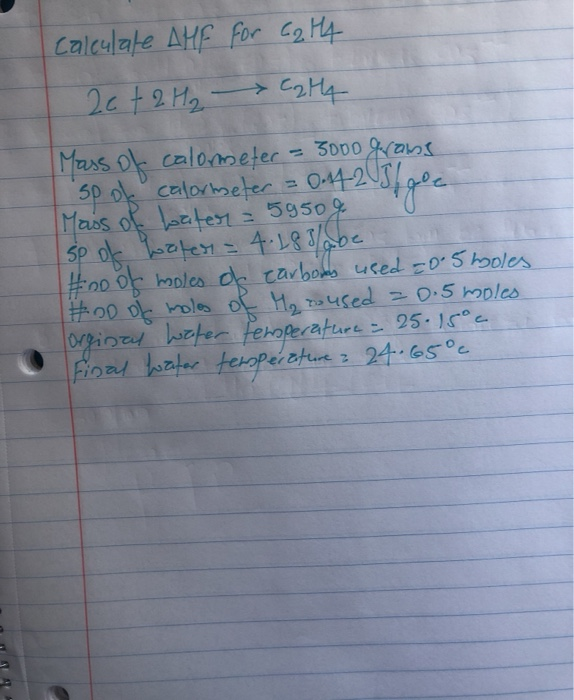 Calculate ΔHF for C2H4
2C + 2H2 → C2H4
Mass of calormeter = 3000 grams
Sp of calormeter = 0.442 J/g°c
Mass of water = 5950g
Sp of water = 4.183J/g°c
#no of moles of carbons used = 0.5 moles
#no of moles of H2 used = 0.5 moles
Orginal water temperature = 25.15°c
Final water temperature = 24.65°c